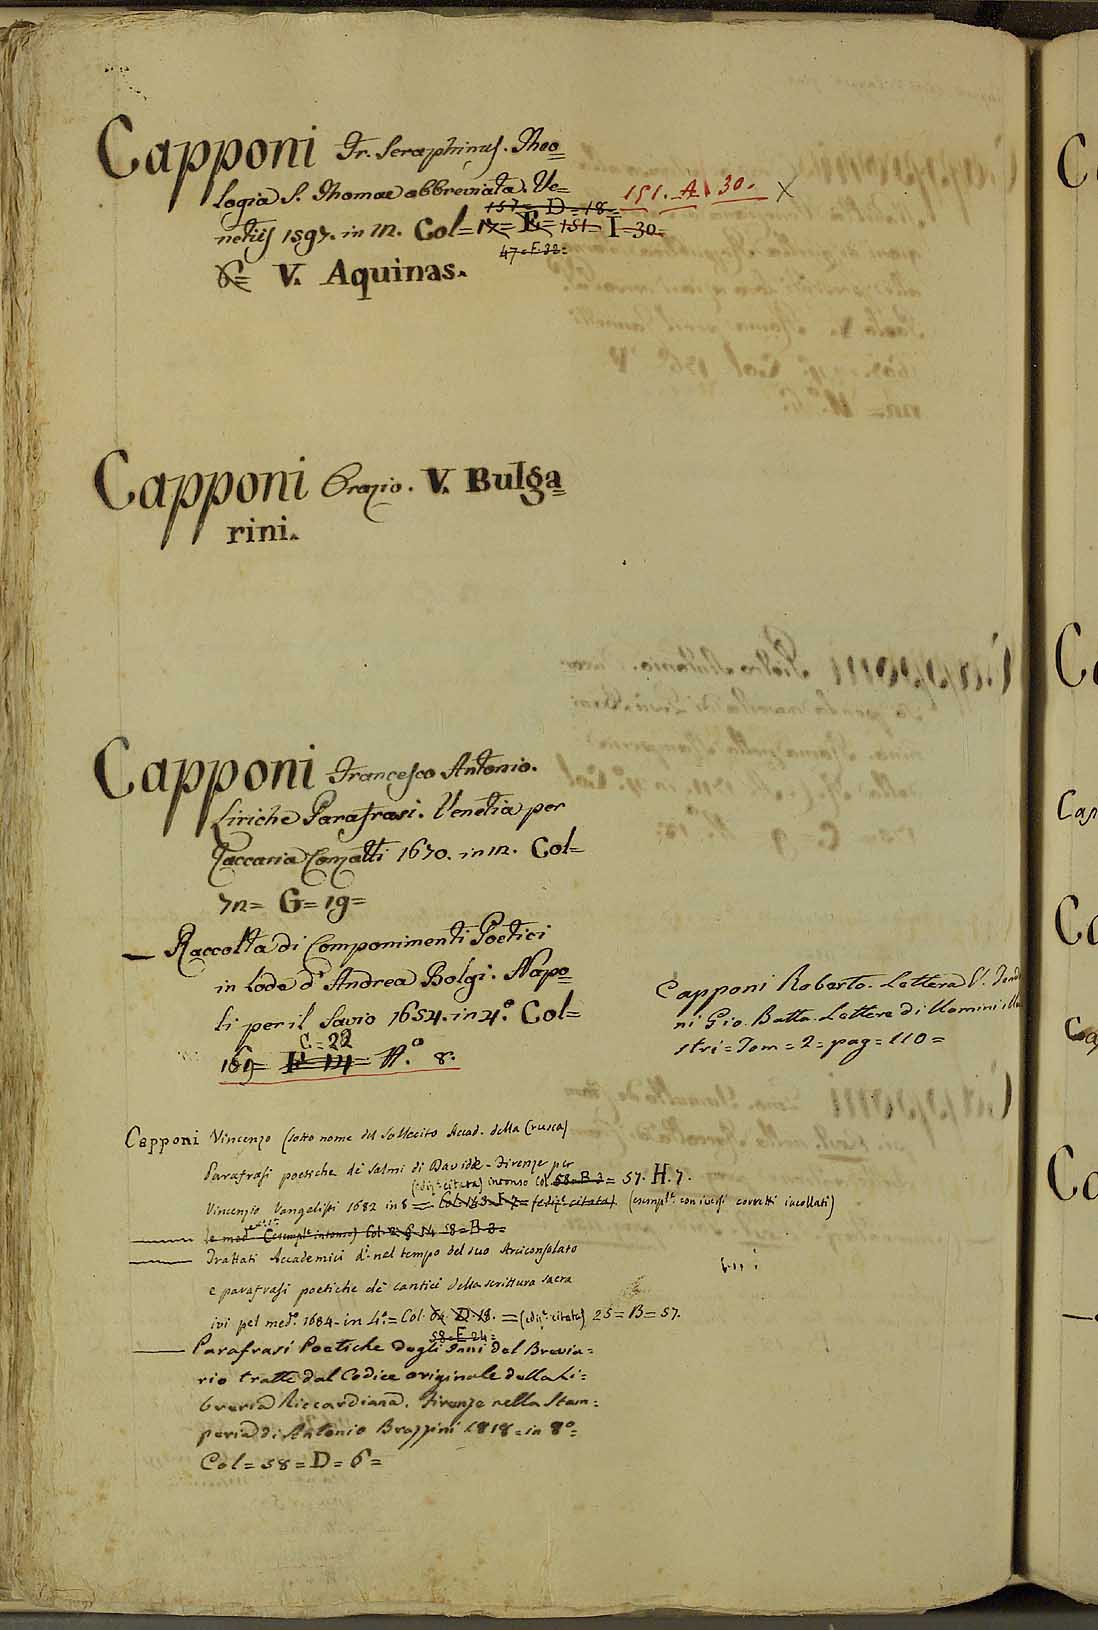 Capponi Fr. Seraphinus. Theo=
logia S. Thomae abbreviata. Ve=
netijs 1597. in 12. Col= 17= E= 151= I=30=
157= D=18=
151. A. 30. X
47=F.32=
6= V. Aquinas.
Capponi Orazio. V. Bulga=
rini.
Capponi Francesco Antonio.
Liriche Parafrasi. Venetia per
Zaccaria Conzatti 1670. in 12. Col=
72= G= 19=
— Raccolta di Componimenti Poetici
in lode d'Andrea Bolgi. Napo=
li per il Savio 1654. in 4.° Col=
C=22
169= E= 14= N.° 8.
Capponi Roberto. Lettera V.
ni Gio. Batta. Lettere di Uomini
stri= Tom=2= pag=110=
Capponi Vincenzo (sotto nome del Sollecito Accad. della Crusca)
Parafrasi poetiche de' salmi di Davidde. Firenze per
(ediz.e citata) intonso Col. 58=B 3= 57. H. 7.
Vincenzio Vangelisti 1682 in 8= Col. 143. F. 7= (ediz.e citata) (esempl.e con i versi corretti incollati)
—— le med (esempl.e intonso) Col. 58=B 3=
—— Trattati Accademici di nel tempo del suo Arciconsolato
e parafrasi poetiche de' cantici della scrittura sacra
ivi pel med.° 1684. in 4.°= Col. 64. D. 18. = (ediz.e citata) 25=B=57.
58=E 24=
—— Parafrasi Poetiche degli Inni del Brevia=
rio tratte dal Codice originale della Li=
breria Riccardiana. Firenze nella Stam=
peria di Antonio Brazzini 1818= in 8.°=
Col= 58= D= 6=